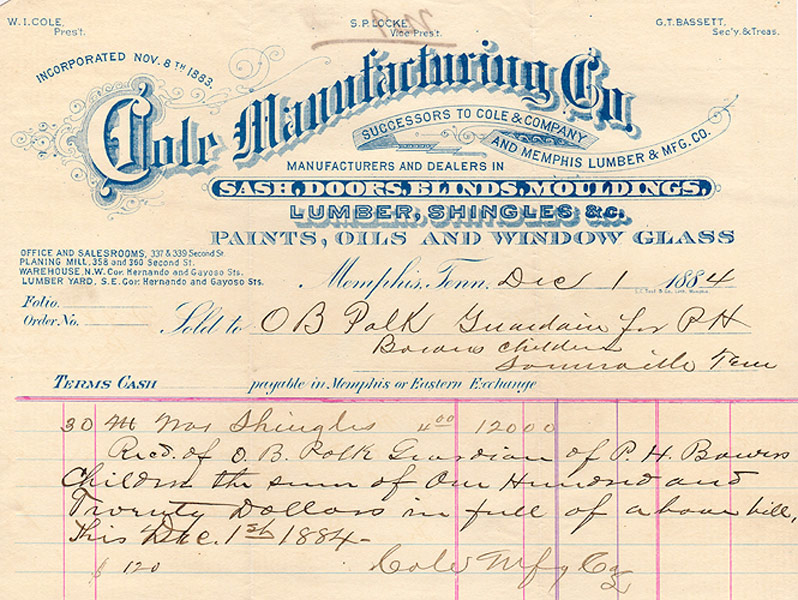 W. I. COLE, S. P. LOCKE, G. T. BASSETT,
Pres't. Vice Pres't. Sec'y. & Treas.
INCORPORATED NOV. 8TH 1883.
Cole Manufacturing Co.
SUCCESSORS TO COLE & COMPANY
AND MEMPHIS LUMBER & MFG. CO.
MANUFACTURERS AND DEALERS IN
SASH, DOORS, BLINDS, MOULDINGS,
LUMBER, SHINGLES &c.
PAINTS, OILS AND WINDOW GLASS
OFFICE AND SALESROOMS, 337 & 339 Second St.
PLANING MILL, 358 and 360 Second St.
WAREHOUSE, N.W. Cor. Hernando and Gayoso Sts.
LUMBER YARD, S.E. Cor. Hernando and Gayoso Sts.
Memphis, Tenn. Dec 1 1884
Folio
Order No.
Sold to O B Polk Guardain for P H
Bowers children
Somerville Tenn
TERMS CASH payable in Memphis or Eastern Exchange
30 M Shingles 400 12000
Recd. of O. B. Polk Guardian of P. H. Bowers
Children the sum of One Hundred and
Twenty Dollars in full of above bill,
This Dec. 1st 1884-
$ 120 Cole Mfg Co